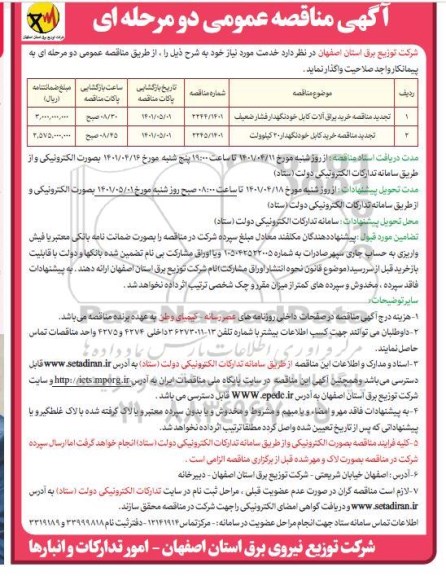 آگهی مناقصه عمومی دو مرحله ای
شرکت توزیع برق استان اصفهان
شرکت توزیع برق استان اصفهان در نظر دارد خدمت مورد نیاز خود به شرح ذیل را ، از طریق مناقصه عمومی دو مرحله ای به
پیمانکار واجد صلاحیت واگذار نماید.
ردیف موضوع مناقصه شماره مناقصه تاریخ بازگشایی پاکات مناقصه ساعت بازگشایی پاکات مناقصه مبلغ ضمانتنامه (ریال)
۱ تجدید مناقصه خرید یراق آلات کابل خودنگهدار فشار ضعیف ۲۲۴۴/۱۴۰۱ ۱۴۰۱/۰۵/۰۱ ۰۸/۳۰ صبح ۳,۰۰۰,۰۰۰,۰۰۰
۲ تجدید مناقصه خرید کابل خودنگهدار ۲۰ کیلوولت ۲۲۴۵/۱۴۰۱ ۱۴۰۱/۰۵/۰۱ ۰۸/۴۵ صبح ۲,۵۷۵,۰۰۰,۰۰۰
مدت دریافت اسناد مناقصه : از روز شنبه مورخ ۱۴۰۱/۰۴/۱۱ تا ساعت ۱۹:۰۰ پنج شنبه مورخ ۱۴۰۱/۰۴/۱۶ بصورت الکترونیکی و از
طریق سامانه تدارکات الکترونیکی دولت (ستاد)
مدت تحویل پیشنهادات : از روز شنبه مورخ ۱۴۰۱/۰۴/۱۸ تا ساعت ۰۸:۰۰ صبح روز شنبه مورخ ۱۴۰۱/۰۵/۰۱ بصورت الکترونیکی و
از طریق سامانه تدارکات الکترونیکی دولت (ستاد)
محل تحویل پیشنهادات : سامانه تدارکات الکترونیکی دولت (ستاد)
تضامین مورد قبول : پیشنهاددهندگان مکلفند معادل مبلغ سپرده شرکت در مناقصه را بصورت ضمانت نامه بانکی معتبر یا فیش
واریزی به حساب جاری سپهر صادرات به شماره و یا اوراق مشارکت بی نام تضمین شده بانکها و دولت با قابلیت
بازخرید قبل از سررسید (موضوع قانون نحوه انتشار اوراق مشارکت) بنام شرکت توزیع برق استان اصفهان ارائه دهند . به پیشنهادات
فاقد سپرده ، مخدوش و سپرده های کمتر از میزان مقرر و چک شخصی ترتیب اثر داده نخواهد شد.
سایر توضیحات :
۱- هزینه درج آگهی مناقصه در صفحات داخلی روزنامه های عصر رسانه - کیمیای وطن به عهده برنده مناقصه می باشد.
۲- داوطلبان می توانند جهت کسب اطلاعات بیشتر با شماره تلفن ۱۳-۳۶۲۷۳۰۱۱ داخلی ۴۲۷۴ و ۴۲۷۵ واحد مناقصات تماس
حاصل نمایند.
۳- اسناد و مدارک و اطلاعات این مناقصه از طریق سامانه تدارکات الکترونیکی دولت (ستاد) به آدرس www.setadiran.ir قابل
دسترسی می باشد و همچنین آگهی این مناقصه در سایت پایگاه ملی مناقصات ایران به آدرس http://iets.mporg.ir و سایت
شرکت توزیع برق استان اصفهان به آدرس WWW.epedc.ir قابل دسترسی می باشد.
۴- به پیشنهادات فاقد مهر و امضاء و یا مبهم و مشروط و مخدوش و یا بدون سپرده معتبر و یا لاک گرفته شده با لاک غلطگیر و یا
پیشنهاداتی که پس از تاریخ تعیین شده واصل گردد مطلقا ترتیب اثر داده نخواهد شد.
۵- کلیه فرایند مناقصه بصورت الکترونیکی و از طریق سامانه تدارکات الکترونیکی دولت (ستاد) انجام خواهد گرفت اما ارسال سپرده
شرکت در مناقصه بصورت لاک و مهر شده قبل از برگزاری مناقصه الزامی است .
۶- آدرس : اصفهان خیابان شریعتی - شرکت توزیع برق استان اصفهان - دبیرخانه
۷- لازم است مناقصه گران در صورت عدم عضویت قبلی ، مراحل ثبت نام در سایت تدارکات الکترونیکی دولت (ستاد) به آدرس
www.setadiran.ir و دریافت گواهی امضای الکترونیکی را جهت شرکت در مناقصه محقق سازند.
اطلاعات تماس سامانه ستاد جهت انجام مراحل عضویت در سامانه : مرکز تماس ۱۲۱۴۱۹۱۴- دفتر ثبت نام ۳۳۹۹۹۸۱۸ و ۳۳۱۹۱۸۹
شرکت توزیع نیروی برق استان اصفهان - امور تدارکات و انبارها